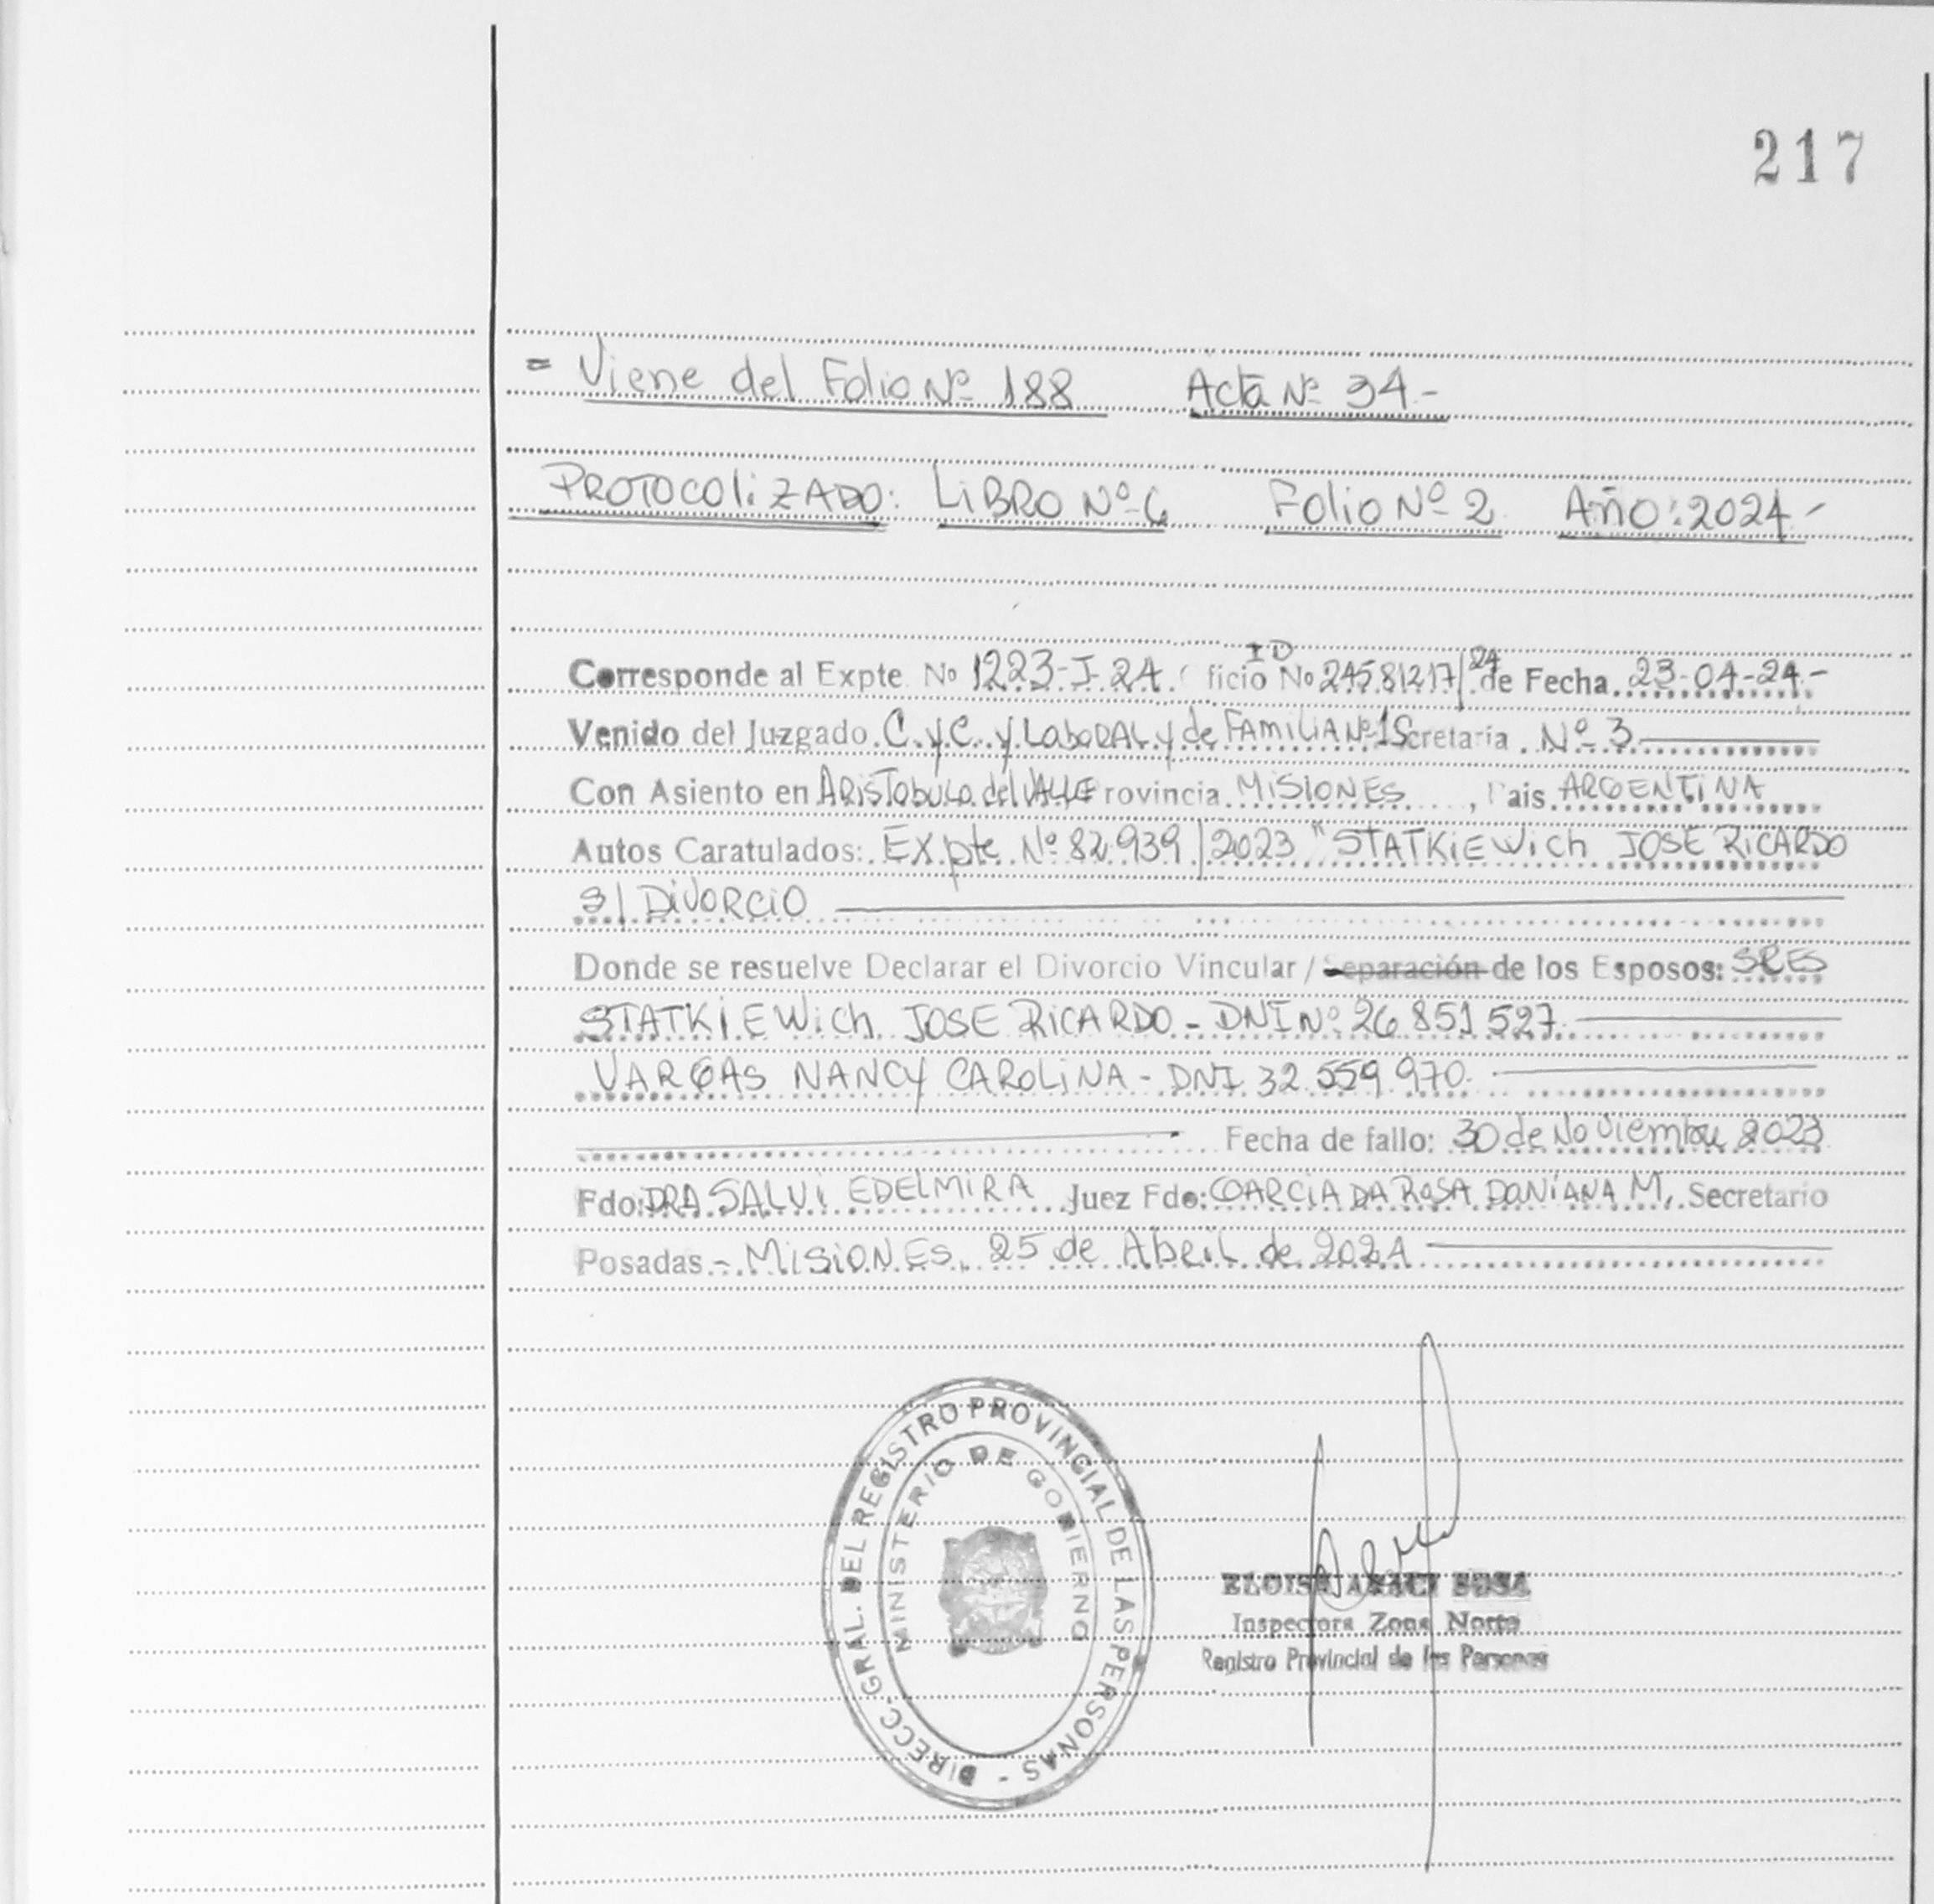 217
= Viene del Folio Nº 188 Acta Nº 34.-
PROTOCOLIZADO: LIBRO Nº 6 Folio Nº 2 Año: 2024-
Corresponde al Expte. No 1223-I-24. ficio ID No 24581217/24 de Fecha 23-04-24.-
Venido del Juzgado C. y C. y LABORAL y de FAMILIA Nº 1 Secretaria Nº 3
Con Asiento en ARISTOBULO del VALLE Provincia MISIONES, Pais ARGENTINA
Autos Caratulados: EXpte Nº 82.939/2023 "STATKIEWich JOSE RICARDO
S/ DIVORCIO
Donde se resuelve Declarar el Divorcio Vincular / Separación de los Esposos: SRES
STATKIEWich JOSE RICARDO - DNI Nº 26.851.527.
VARGAS NANCY CAROLINA - DNI 32.559.970.
Fecha de fallo: 30 de Noviembre 2023
Fdo: DRA SALVI EDELMIRA Juez Fdo: GARCIA DA ROSA DANIANA M. Secretario
Posadas - MISIONES, 25 de Abril de 2024
DIRECC. GRAL. DEL REGISTRO PROVINCIAL DE LAS PERSONAS -
MINISTERIO DE GOBIERNO
ELOISA ARACI SOSA
Inspectora Zona Norte
Registro Provincial de las Personas